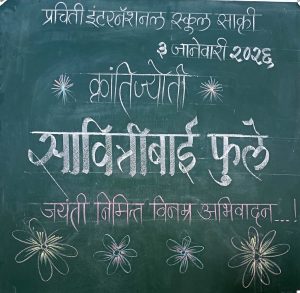 प्रचिती इंटरनॅशनल स्कूल साक्री
३ जानेवारी २०२६
क्रांतिज्योती
सावित्रीबाई फुले
जयंती निमित्त विनम्र अभिवादन...!